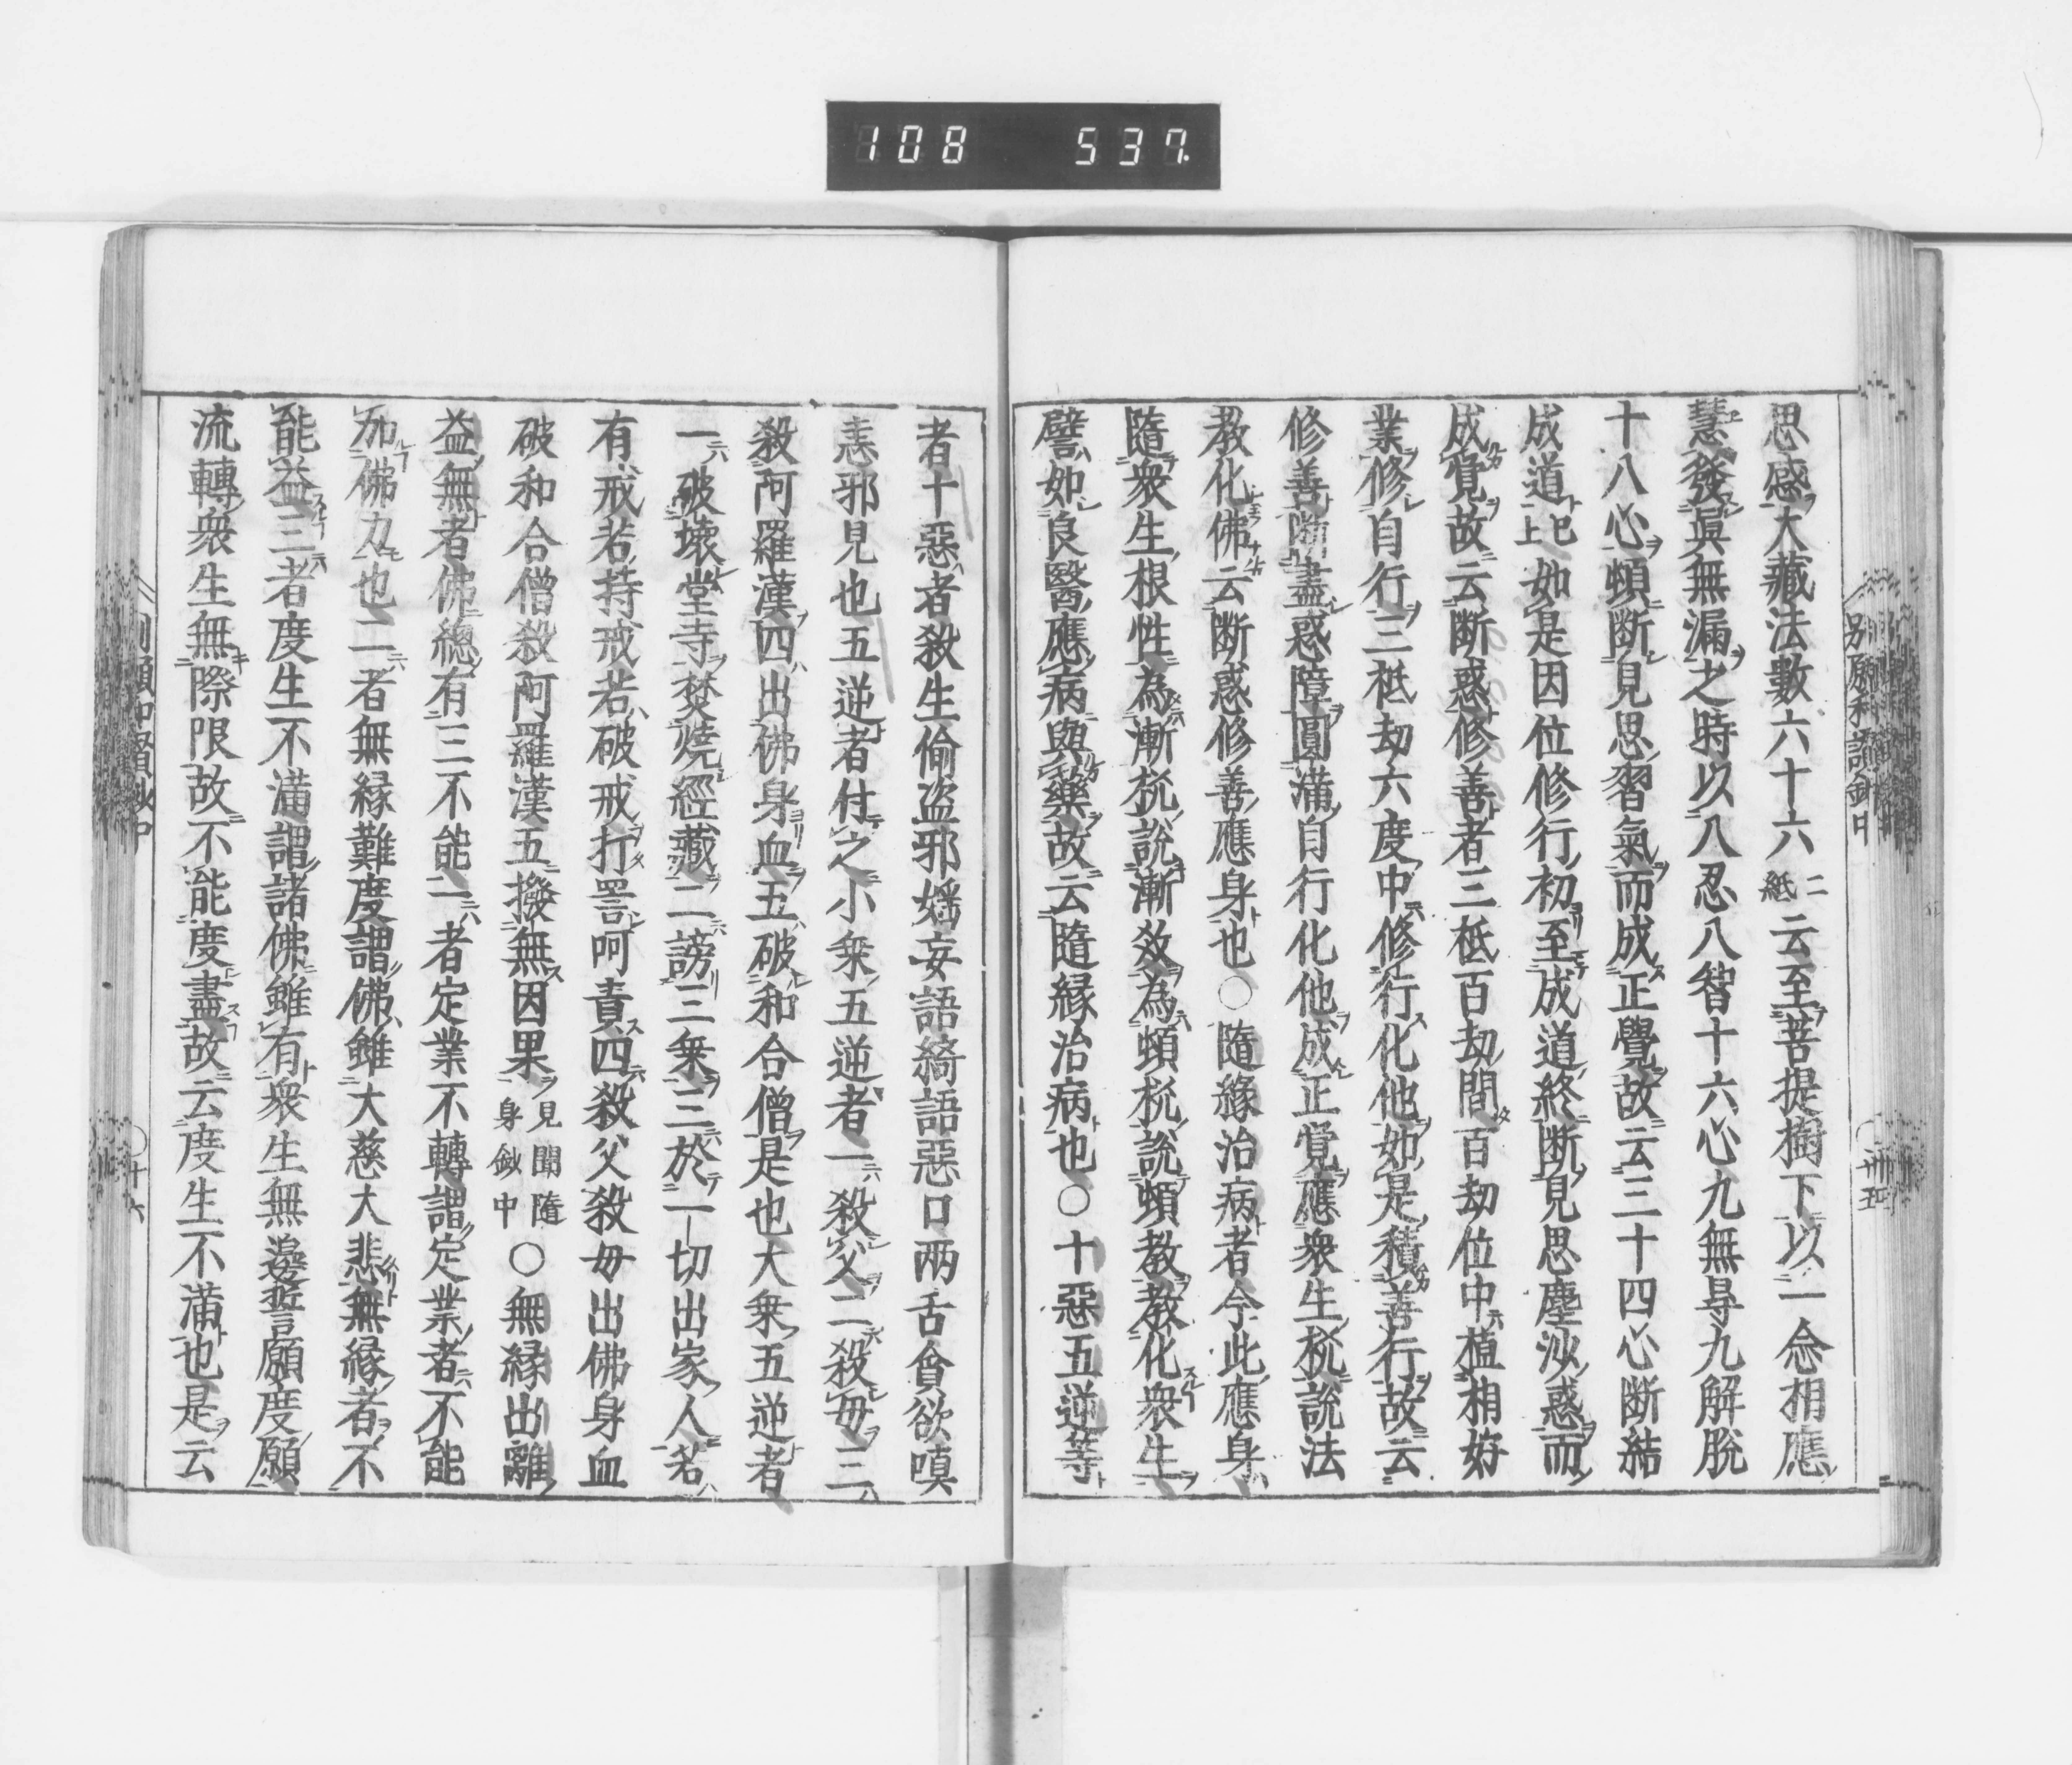 108 537
思惑大藏法數六十六二紙云至菩提樹下以一念相應
慧發眞無漏之時以八忍八智十六心九無㝵九解脫
十八心頓断見思習氣而成正覺故云三十四心断結
成道上已如是因位修行初至成道終断見思塵沙惑而
成覚故云断惑修善者三祇百劫間百劫位中植相好
業修自行三祇劫六度中修行化他如是積善行故云
修善断盡惑障圓滿自行化他成正覚應衆生機說法
教化佛云断惑修善應身也○隨緣治病者今此應身
隨衆生根性為漸機說漸教為頓機說頓教教化衆生
譬如良醫應病與藥故云隨緣治病也○十惡五逆等
者十惡者殺生偷盗邪婬妄語綺語惡口兩舌貪欲嗔
恚邪見也五逆者付之小乗五逆者一殺父二殺母三
殺阿羅漢四出佛身血五破和合僧是也大乗五逆者
一破壊堂寺焚燒經藏二謗三乗三於一切出家人若
有戒若持戒若破戒打罵呵責四殺父殺母出佛身血
破和合僧殺阿羅漢五撥無因果見聞隨身鈔中○無縁出離
益無者佛總有三不能一者定業不轉謂定業者不能
加佛力也二者無縁難度謂佛雖大慈大悲無縁者不
能益三者度生不滿謂諸佛雖有衆生無邊誓願度願
流轉衆生無際限故不能度盡故云度生不滿也是云